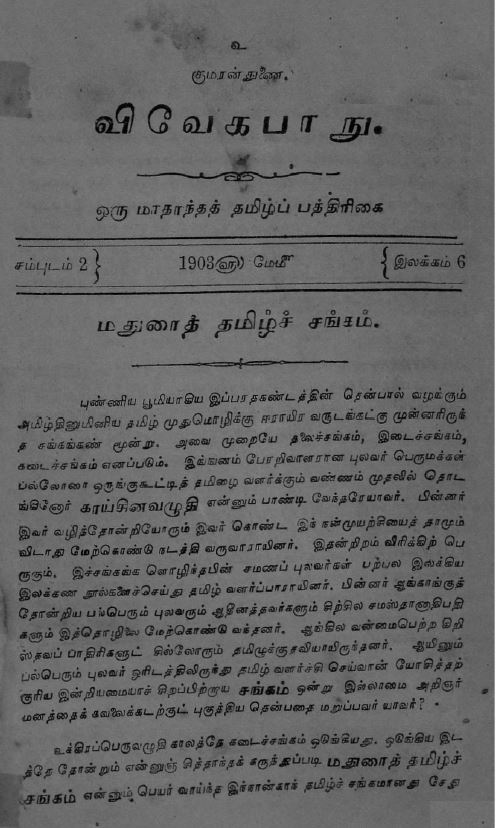 உ
குமரன் துணை.
விவேகபாநு.
ஒரு மாதாந்தத் தமிழ்ப் பத்திரிகை
சம்புடம் 2 } 1903௵ மேமீ { இலக்கம் 6
மதுரைத் தமிழ்ச் சங்கம்.
புண்ணிய பூமியாகிய இப்பரதகண்டத்தின் தென்பால் வழங்கும்
அமிழ்தினுமினிய தமிழ் முதுமொழிக்கு ஈராயிர வருடங்கட்கு முன்னரிருந்
த சங்கங்கள் மூன்று. அவை முறையே தலைச்சங்கம், இடைச்சங்கம்,
கடைச்சங்கம் எனப்படும். இங்ஙனம் பேரறிவாளரான புலவர் பெருமக்கள்
பல்லோரை ஒருங்குகூட்டித் தமிழை வளர்க்கும் வண்ணம் முதலில் தொட
ங்கினோர் காய்சினவழுதி என்னும் பாண்டி வேந்தரேயாவர். பின்னர்
இவர் வழித்தோன்றியோரும் இவர் கொண்ட இந் நன்முயற்சியைத் தாமும்
விடாது மேற்கொண்டு நடத்தி வருவாராயினர். இதன்றிறம் விரிக்கிற் பெ
ருகும். இச்சங்கங்க ளொழிந்தபின் சமணப் புலவர்கள் பற்பல இலக்கிய
இலக்கண நூல்களைச்செய்து தமிழ் வளர்ப்பாராயினர். பின்னர் ஆங்காங்குத்
தோன்றிய பல்பெரும் புலவரும் ஆதீனத்தவர்களும் சிற்சில சமஸ்தானாதிபதி
களும் இத்தொழிலை மேற்கொண்டு வந்தனர். ஆங்கில வன்மைபெற்ற கிறி
ஸ்தவப் பாதிரிகளுட் சில்லோரும் தமிழுக்குதவியாயிருந்தனர். ஆயினும்
பல்பெரும் புலவர் ஓரிடத்திலிருந்து தமிழ் வளர்ச்சி செய்வான் யோசித்தற்
குரிய இன்றியமையாச் சிறப்பிற்றாய சங்கம் ஒன்று இல்லாமை அறிஞர்
மனத்தைக் கவலைக்கடற்குட் புகுத்திய தென்பதை மறுப்பவர் யாவர்?
உக்கிரப்பெருவழுதி காலத்தே கடைச்சங்கம் ஒடுங்கியது. ஒடுங்கிய இட
த்தே தோன்றும் என்னுஞ் சித்தாந்தக் கருத்துப்படி மதுரைத் தமிழ்ச்
சங்கம் என்னும் பெயர் வாய்ந்த இந்நான்காந் தமிழ்ச் சங்கமானது சேது